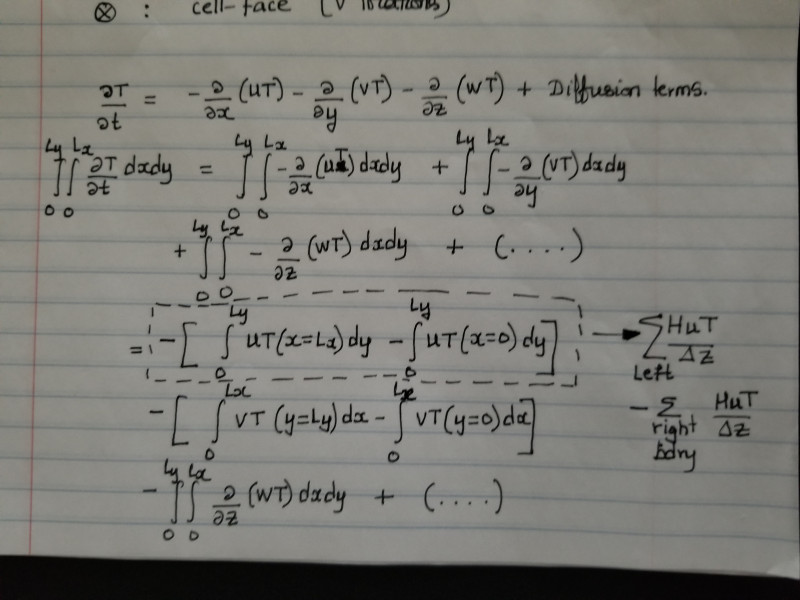 ⊗ : cell-face (V locations)
∂T/∂t = -∂/∂x (UT) - ∂/∂y (VT) - ∂/∂z (WT) + Diffusion terms.
∫₀^Ly ∫₀^Lx ∂T/∂t dxdy = ∫₀^Ly ∫₀^Lx -∂/∂x (UT) dxdy + ∫₀^Ly ∫₀^Lx -∂/∂y (VT) dxdy
+ ∫₀^Ly ∫₀^Lx -∂/∂z (WT) dxdy + (....)
= -[ ∫₀^Ly UT(x=Lx) dy - ∫₀^Ly UT(x=0) dy ] → Σ_Left HuT/Δz
-[ ∫₀^Lx VT (y=Ly) dx - ∫₀^Lx VT (y=0) dx ] - Σ_right Bdry HuT/Δz
- ∫₀^Ly ∫₀^Lx ∂/∂z (WT) dxdy + (....)